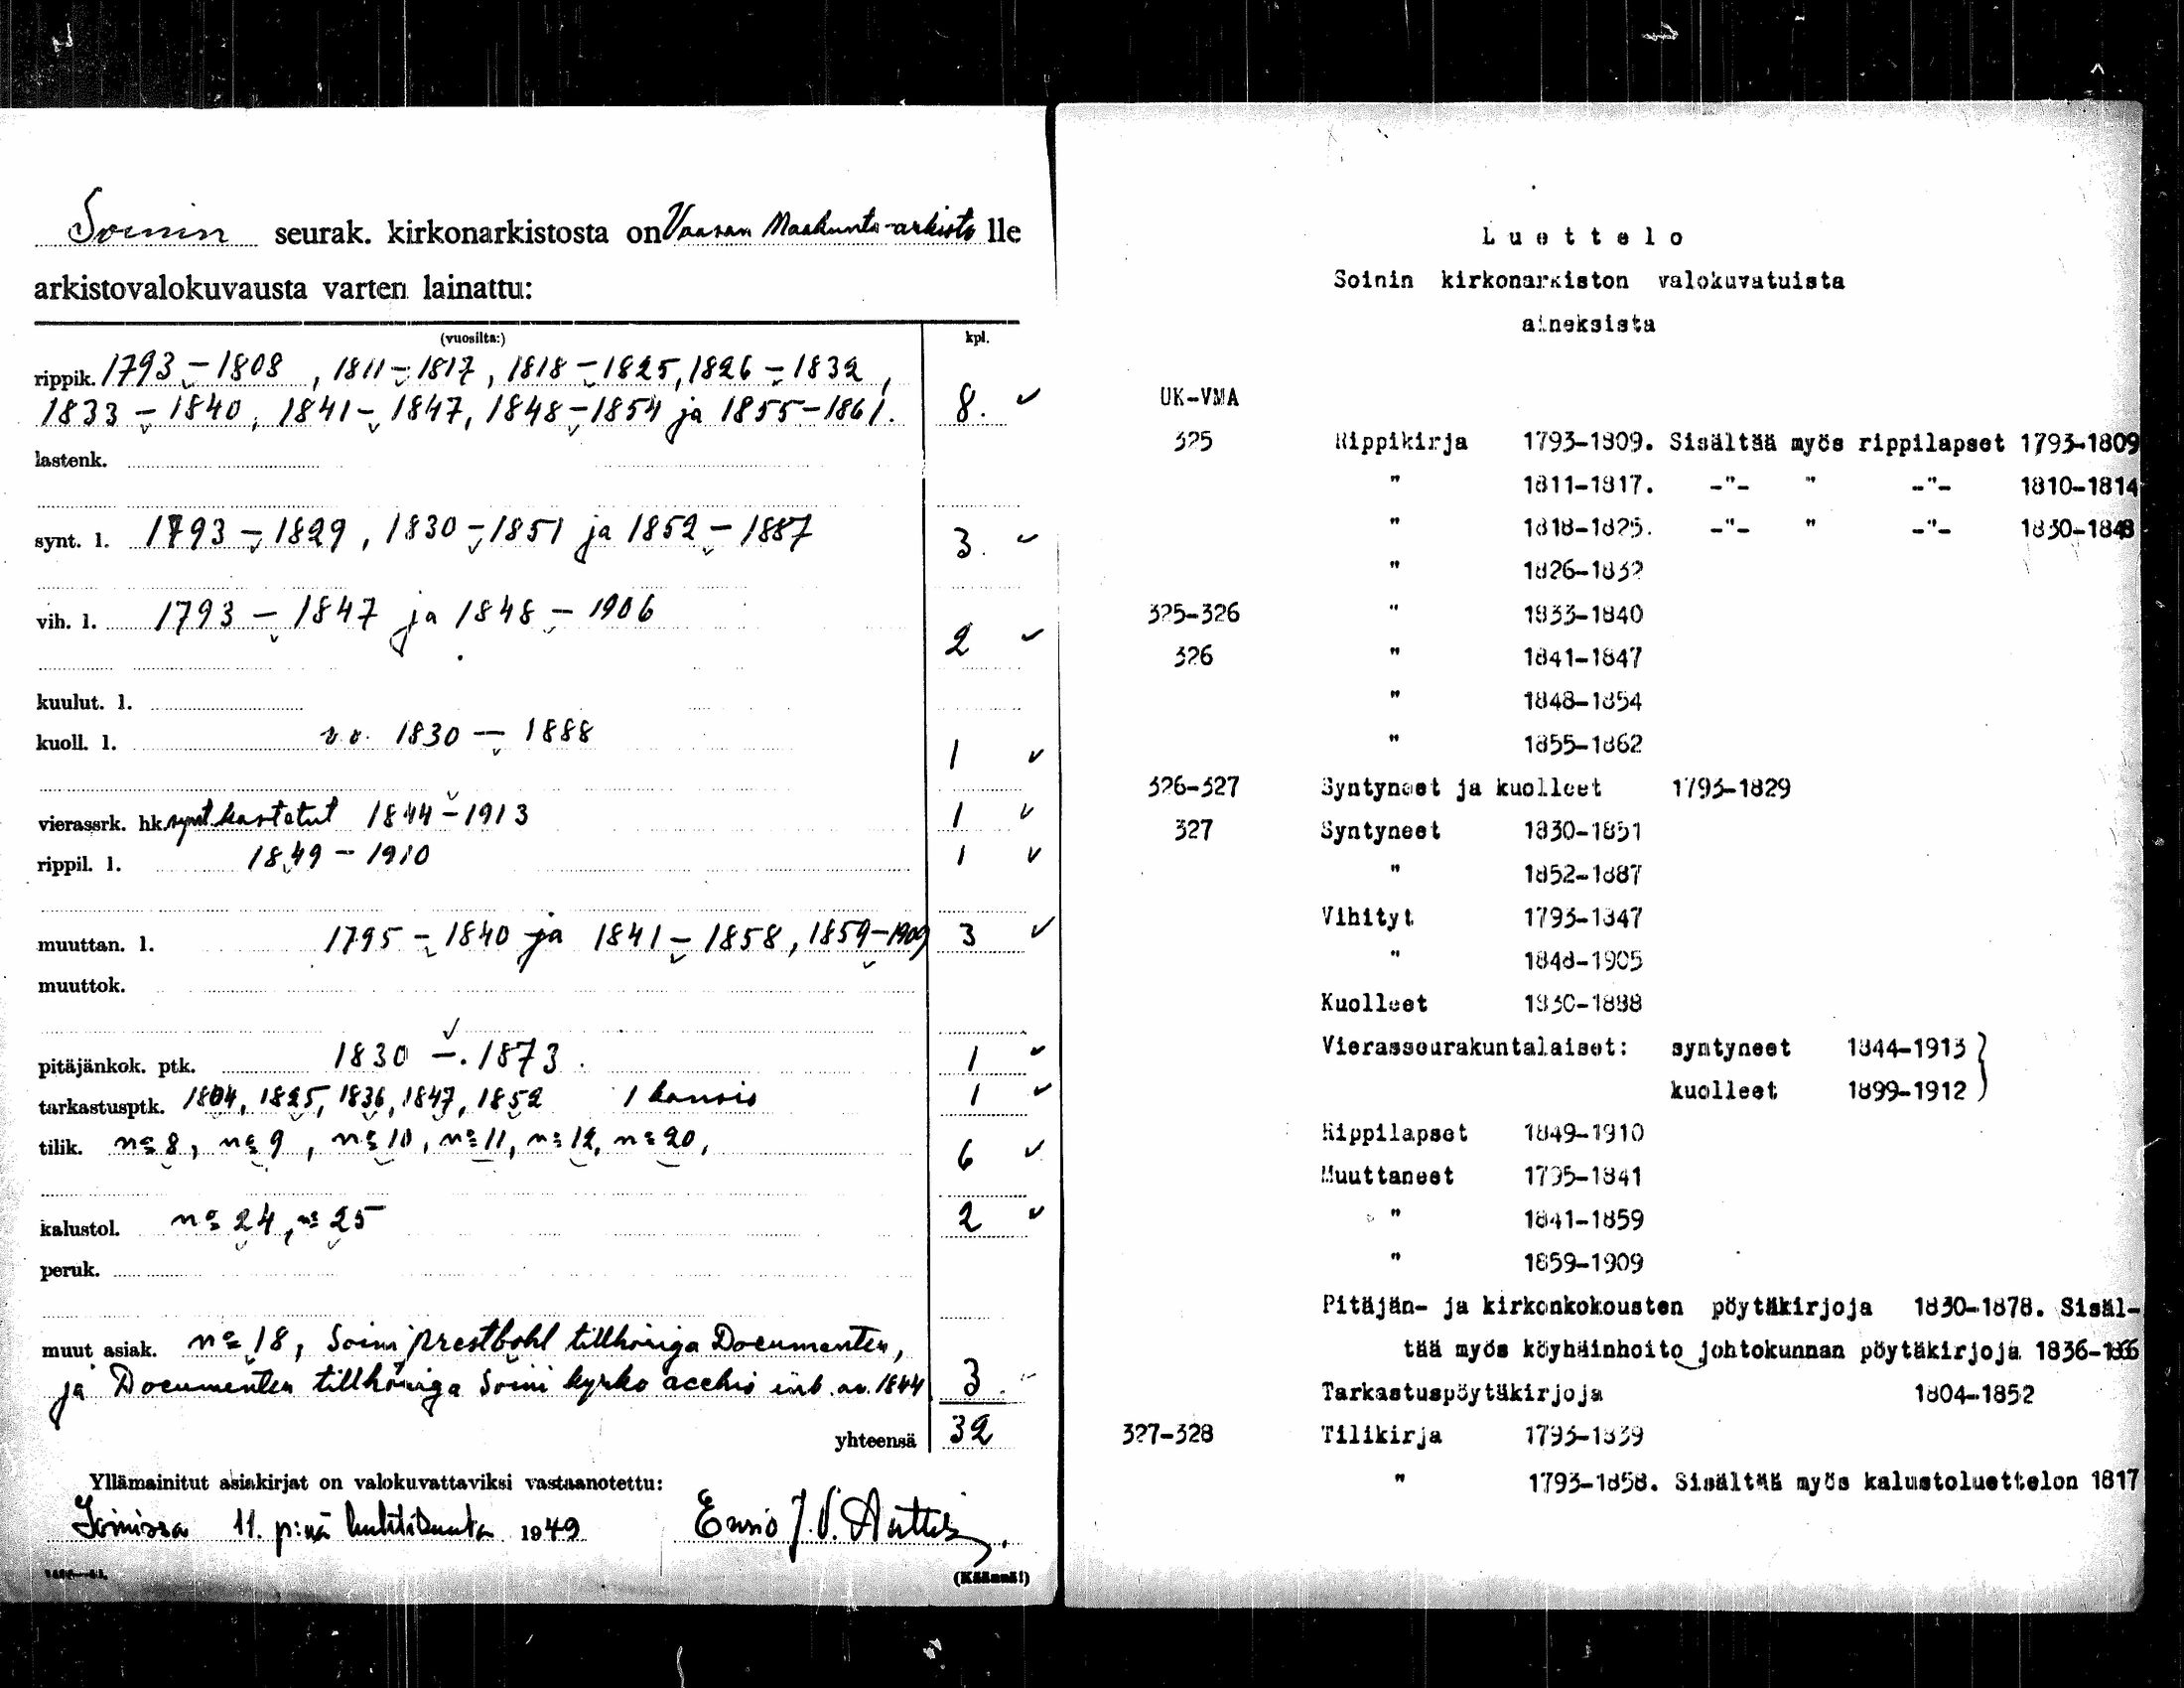 Soinin seurak. kirkonarkistosta on Vaasan Maakunta-arkisto lle
arkistovalokuvausta varten lainattu:
(vuosilta:) kpl.
rippik. 1793-1808, 1811-1817, 1818-1825, 1826-1832,
1833-1840, 1841-1847, 1848-1854 ja 1855-1861. 8.
lastenk.
synt. l. 1793-1829, 1830-1851 ja 1852-1887 3.
vih. l. 1793-1847 ja 1848-1906 2
kuulut. l.
kuoll. l. v.v. 1830-1888 1
vierassrk. hk. synt. kastetut 1844-1913 1
rippil. l. 1849-1910 1
muuttan. l. 1795-1840 ja 1841-1858, 1859-1909 3
muuttok.
pitäjänkok. ptk. 1830-1873. 1
tarkastusptk. 1804, 1825, 1836, 1847, 1852 1 kansio 1
tilik. nº 8, nº 9, nº 10, nº 11, nº 12, nº 20, 6
kalustol. nº 24, nº 25 2
peruk.
muut asiak. nº 18, Soini prestbohl tillhöriga Documenten,
ja Documenten tillhöriga Soini kyrko 1844 3.
yhteensä 32
Yllämainitut asiakirjat on valokuvattaviksi vastaanotettu:
Soinissa 11. p:nä huhtikuuta 1949
(Käännä!)
Luettelo
Soinin kirkonarkiston valokuvatuista
aineksista
UK-VMA
325 Rippikirja 1793-1809. Sisältää myös rippilapset 1793-1809
" 1811-1817. -"- " -"- 1810-1814
" 1818-1825. -"- " -"- 1830-1848
" 1826-1832
325-326 " 1833-1840
326 " 1841-1847
" 1848-1854
" 1855-1862
326-327 Syntyneet ja kuolleet 1793-1829
327 Syntyneet 1830-1851
" 1852-1887
Vihityt 1793-1847
" 1848-1905
Kuolleet 1830-1888
Vierasseurakuntalaiset: syntyneet 1844-1913
kuolleet 1899-1912
Rippilapset 1849-1910
Muuttaneet 1795-1841
" 1841-1859
" 1859-1909
Pitäjän- ja kirkonkokousten pöytäkirjoja 1830-1878. Sisäl-
tää myös köyhäinhoito johtokunnan pöytäkirjoja 1836-1866
Tarkastuspöytäkirjoja 1804-1852
327-328 Tilikirja 1793-1839
" 1793-1858. Sisältää myös kalustoluettelon 1817